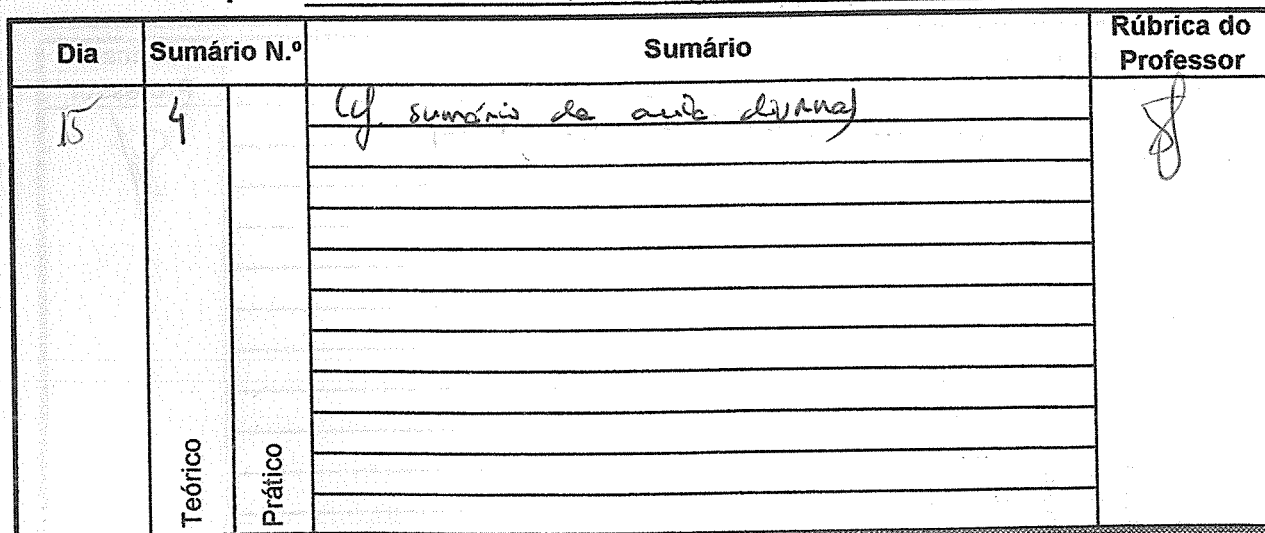 Dia Sumário N.º Sumário Rúbrica do Professor
15 4 (cf. sumário da aula diurna)
Teórico Prático